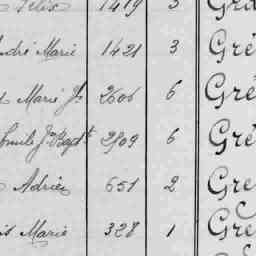 Félix 1419 3 Gré
André Marie 1421 3 Gré
Marie Jh 2606 6 Gré
Emile J. Bapt 2909 6 Gré
Adrien 651 2 Gre
Marie 328 1 Gre